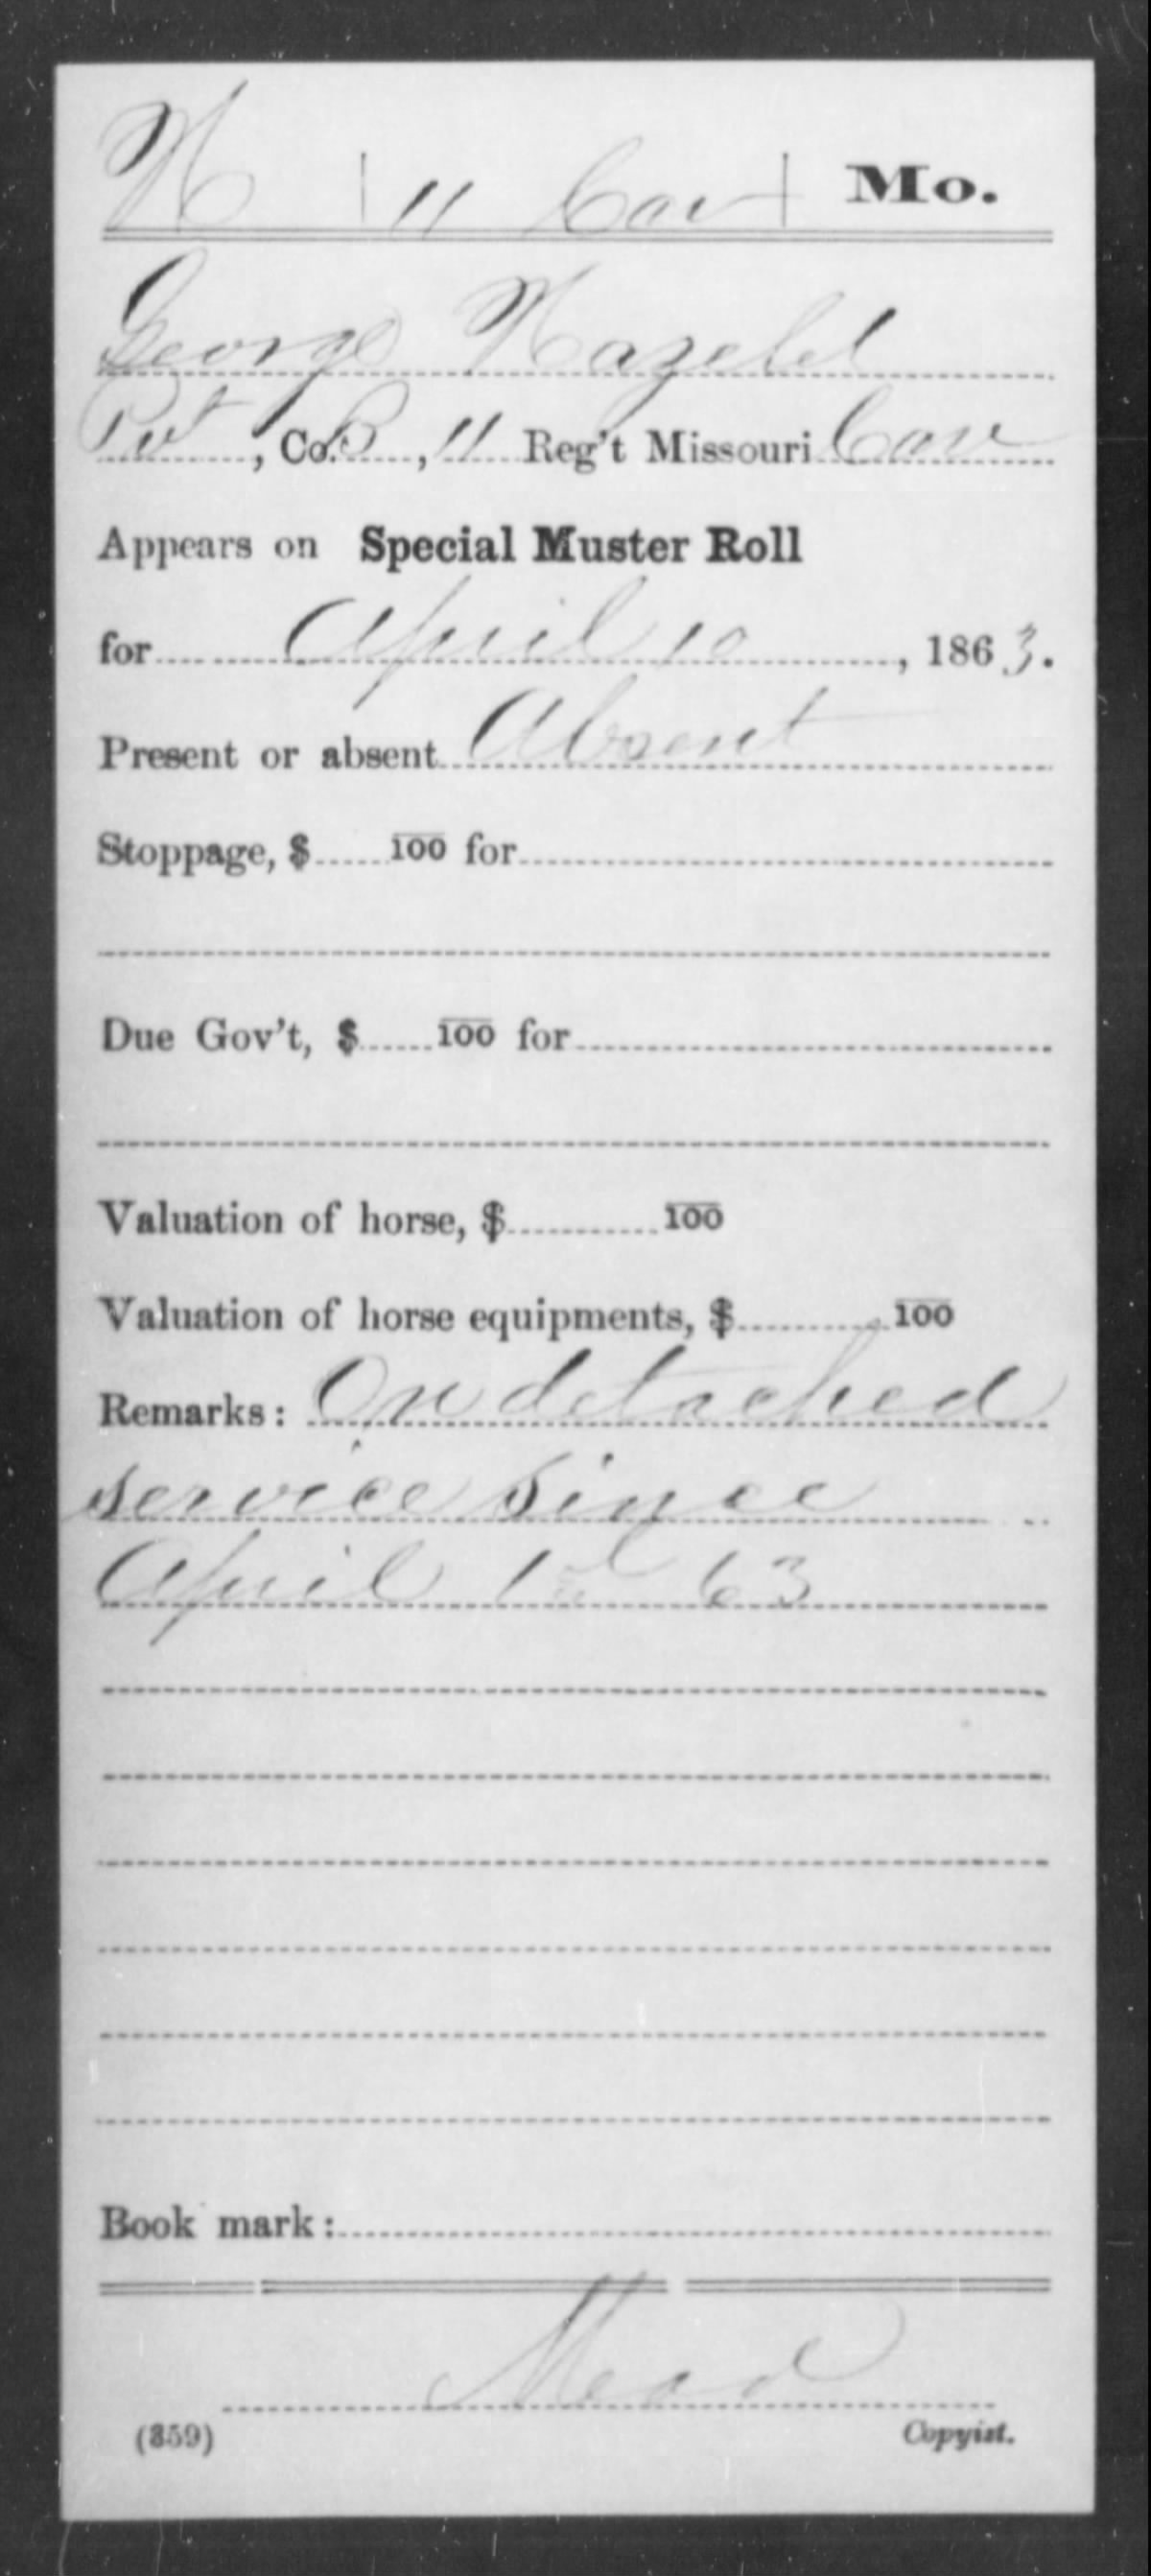 H | 11 Cav | Mo.
George Hazelel
Pvt, Co. B, 11 Reg't Missouri Cav
Appears on Special Muster Roll
for April 10, 1863.
Present or absent Absent
Stoppage, $ 100 for
Due Gov't, $ 100 for
Valuation of horse, $ 100
Valuation of horse equipments, $ 100
Remarks: On detached
service since
April 1st 63
Book mark:
Mead
(359) Copyist.